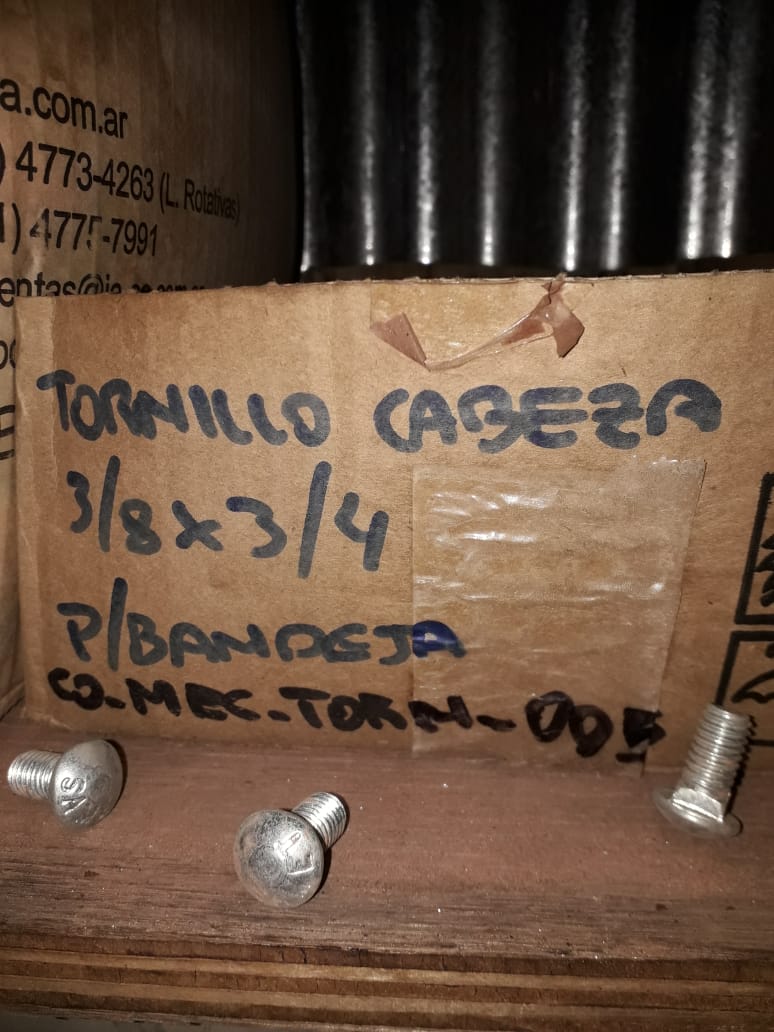 a.com.ar
) 4773-4263 (L. Rotativas)
1) 4775-7991
TORNILLO CABEZA
3/8 x 3/4
P/BANDEJA
CO-MEC-TORN-005